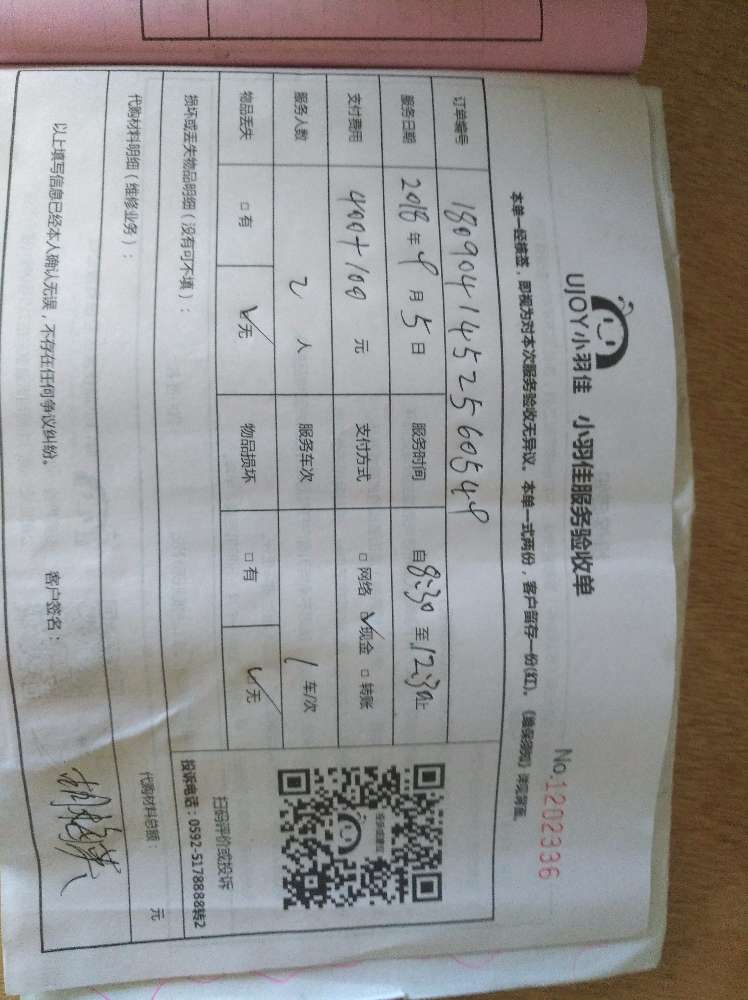 UJOY小羽佳 小羽佳服务验收单
No.1202336
本单一经核签，即视为对本次服务验收无异议。本单一式两份，客户留存一份(红)。《维保须知》详见背面。
订单编号 18090414525560549
服务日期 2018年9月5日 服务时间 自8:30至12:30止
支付费用 400+100 元 支付方式 □网络 ☑现金 □转账
服务人数 2 人 服务车次 1 车/次
物品丢失 □有 ☑无 物品损坏 □有 ☑无
扫码评价或投诉
投诉电话：0592-5178888转2
损坏或丢失物品明细（没有可不填）：
代购材料明细（维修业务）： 代购材料总额： 元
以上填写信息已经本人确认无误，不存在任何争议纠纷。 客户签名：